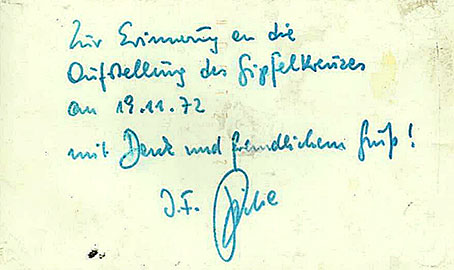 Zur Erinnerung an die
Aufstellung des Gipfelkreuzes
am 19.11.72
mit Dank und freundlichem Gruß!
J.F.